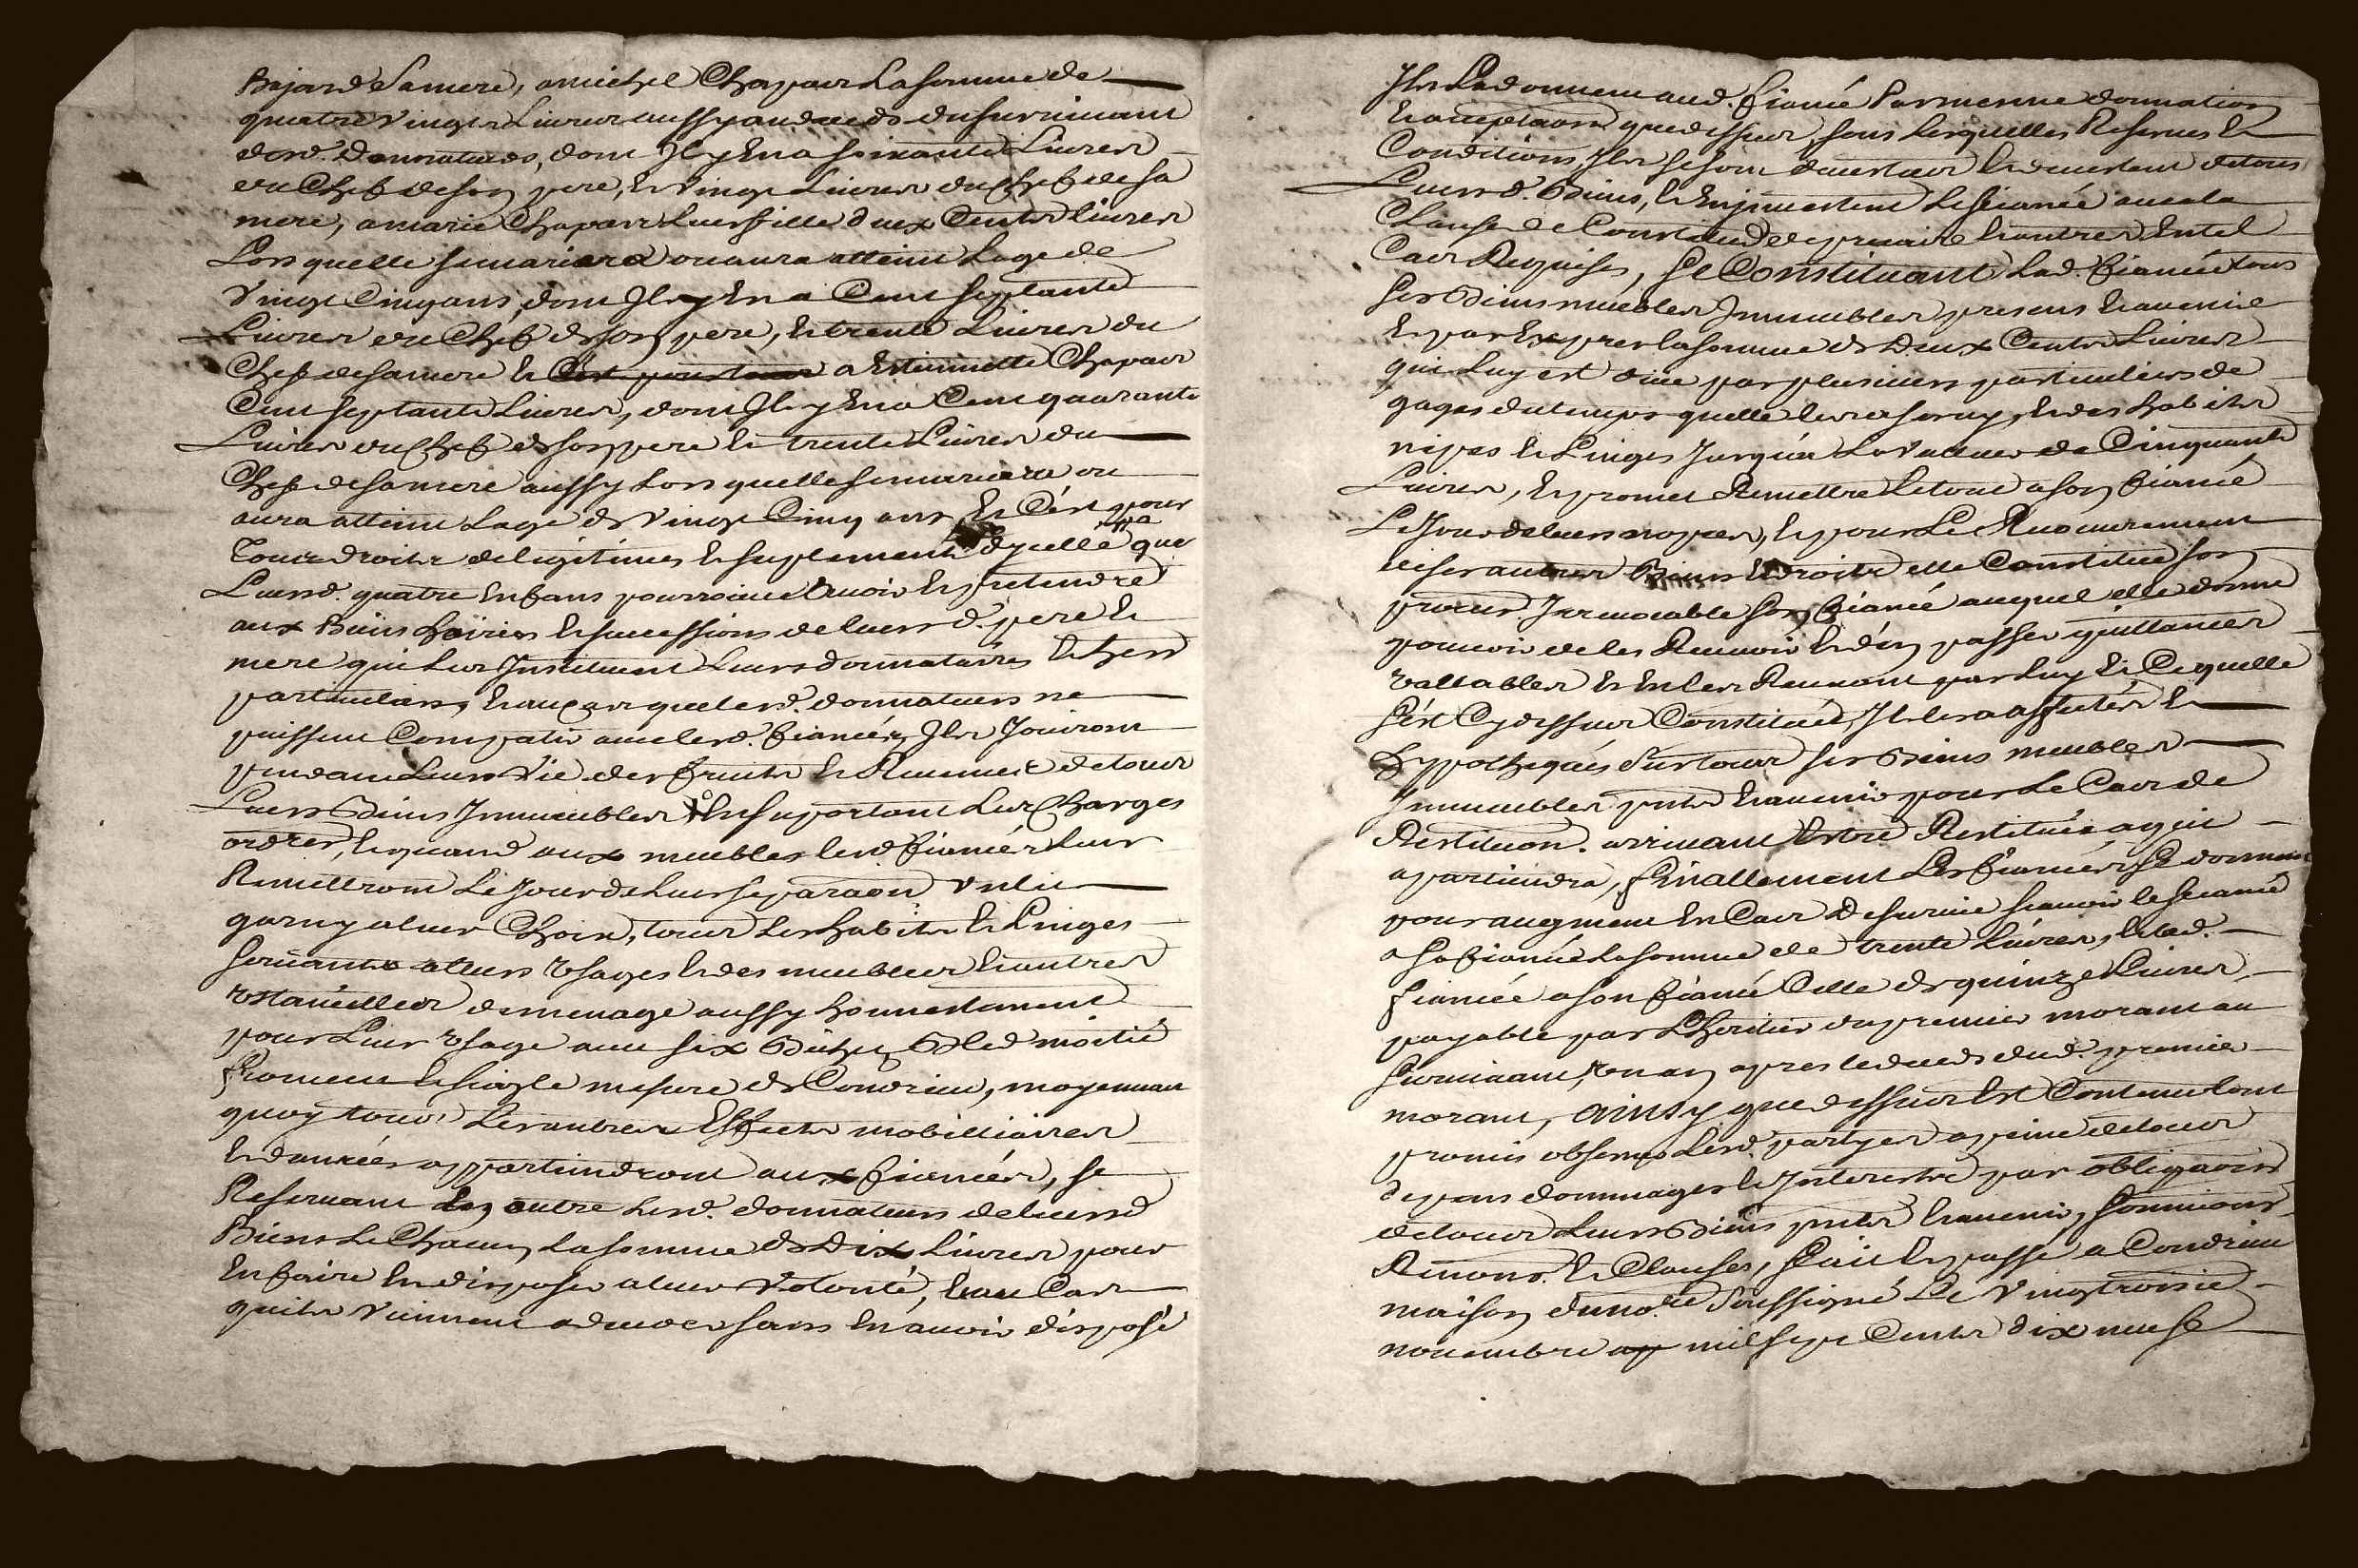 Bajard sa mere, a michel Chapuis la somme de
quatre vingts Livres aussy au deceds du survivant
desd. donnateurs, dont Il y En a soixante Livres
du Chef de son pere, Et vingt Livres du Chef de sa
mere, a marie Chapuis leur fille deux Cents livres
Lors quelle se mariera ou aura atteint Lage de
vingt Cinq ans, dont Il y En a Cent septante
Livres du Chef de son pere, Et trente Livres du
Chef de sa mere Et a Estiennette Chapuis
Cent septante Livres, dont Il y En a Cent quarante
Livres du Chef de son pere Et trente Livres du
Chef de sa mere aussy Lors quelle se mariera ou
aura atteint Lage de vingt Cinq ans, Et C'est pour
tous droits de legitimes Et suplement d'ycelle que
Leursd. quatre Enfans pourroient avoir Et pretendre
aux Biens hoiries Et successions de leursd. pere Et
mere qui Les Instituent Leurs donnataires Et hers
particuliers, Et au Cas que lesd. donnateurs ne
puissent Compatir avec lesd. fiancés, Ils Jouiront
pendant Leurs vie des fruits Et Revenus de tous
Leurs Biens Immeubles En suportant Les Charges
ordres, Et quand aux meubles lesd. fiancés Leurs
Remettront Le Jour de Leur separaon un lit
garny a leur Choix, tous Les habits Et Linges
servants a Leurs usages Et des meubles Et autres
ustancilles de menage aussy honnestement
pour Leur usage avec six Bichets Bled moitié
froment Et seigle mesure de Condrieu, moyennant
quoy tous Les autres Effects mobiliaires
Et danrées appartiendront aux fiancés, se
Reservant En outre Lesd. donnateurs de leursd.
Biens Le Chacun La somme de Dix Livres pour
En faire Et disposer a leur volonté, Et au Cas
quils viennent a deceder sans En avoir disposé
Ils La donnent aud. fiancé Par mesme donnation
Et acceptaon que dessus, sous Lesquelles Reserves Et
Conditions, Ils se sont devestus Et devestent de tous
Leursd. Biens, Et En Investent Le fiancé avec la
Clause de Constitud de precaire Et autres En tel
Cas Requises, Se Constituant Lad. fiancée tous
ses Biens meubles Immeubles presens Et avenir
Et par Expres la somme de Deux Cents Livres
qui Luy est due par plusieurs particuliers de
gages du temps quelle les a servy, Et des habits
nipes Et Linges Jusqu'a La valeur de Cinquante
Livres, Et promet Remettre Le tout a son fiancé
Le Jour de leurs nopces, Et pour Le Recouvrement
de ses autres Biens Et droits elle Constitue son
procur. Irrevocable son fiancé auquel elle donne
pouvoir de les Recevoir Et d'en passer quittances
vallables Et En Les Recevant par Luy Et Ce quelle
s'est Cy dessus Constitué, Il les a affectés Et
hypothequés Sur tous ses Biens meubles
Immeubles pnts Et avenir pour Le Cas de
Restituon. arrivant Estre Restitués a qui
apartiendra, Finallement Les fiancés se donnent
pour augment En Cas De survie scavoir le fiancé
a sa fiancée La somme de trente Livres, Et lad.
fiancée a son fiancé Celle de quinze Livres
payable par Lheritier du premier mourant au
survivant, un an apres le deceds dud. premier
mourant, Ainsy que dessus Est Contenu l'ont
promis observer Lesd. partyes a peine de tous
depens dommages Et Interests par obligaons
de tous Leurs Biens pnts Et avenir, soumions
Renons. Et Clauses, Fait Et passé a Condrieu
maison du nore. soussigné Le vingtroisie
novembre mil sept Cents dix neuf